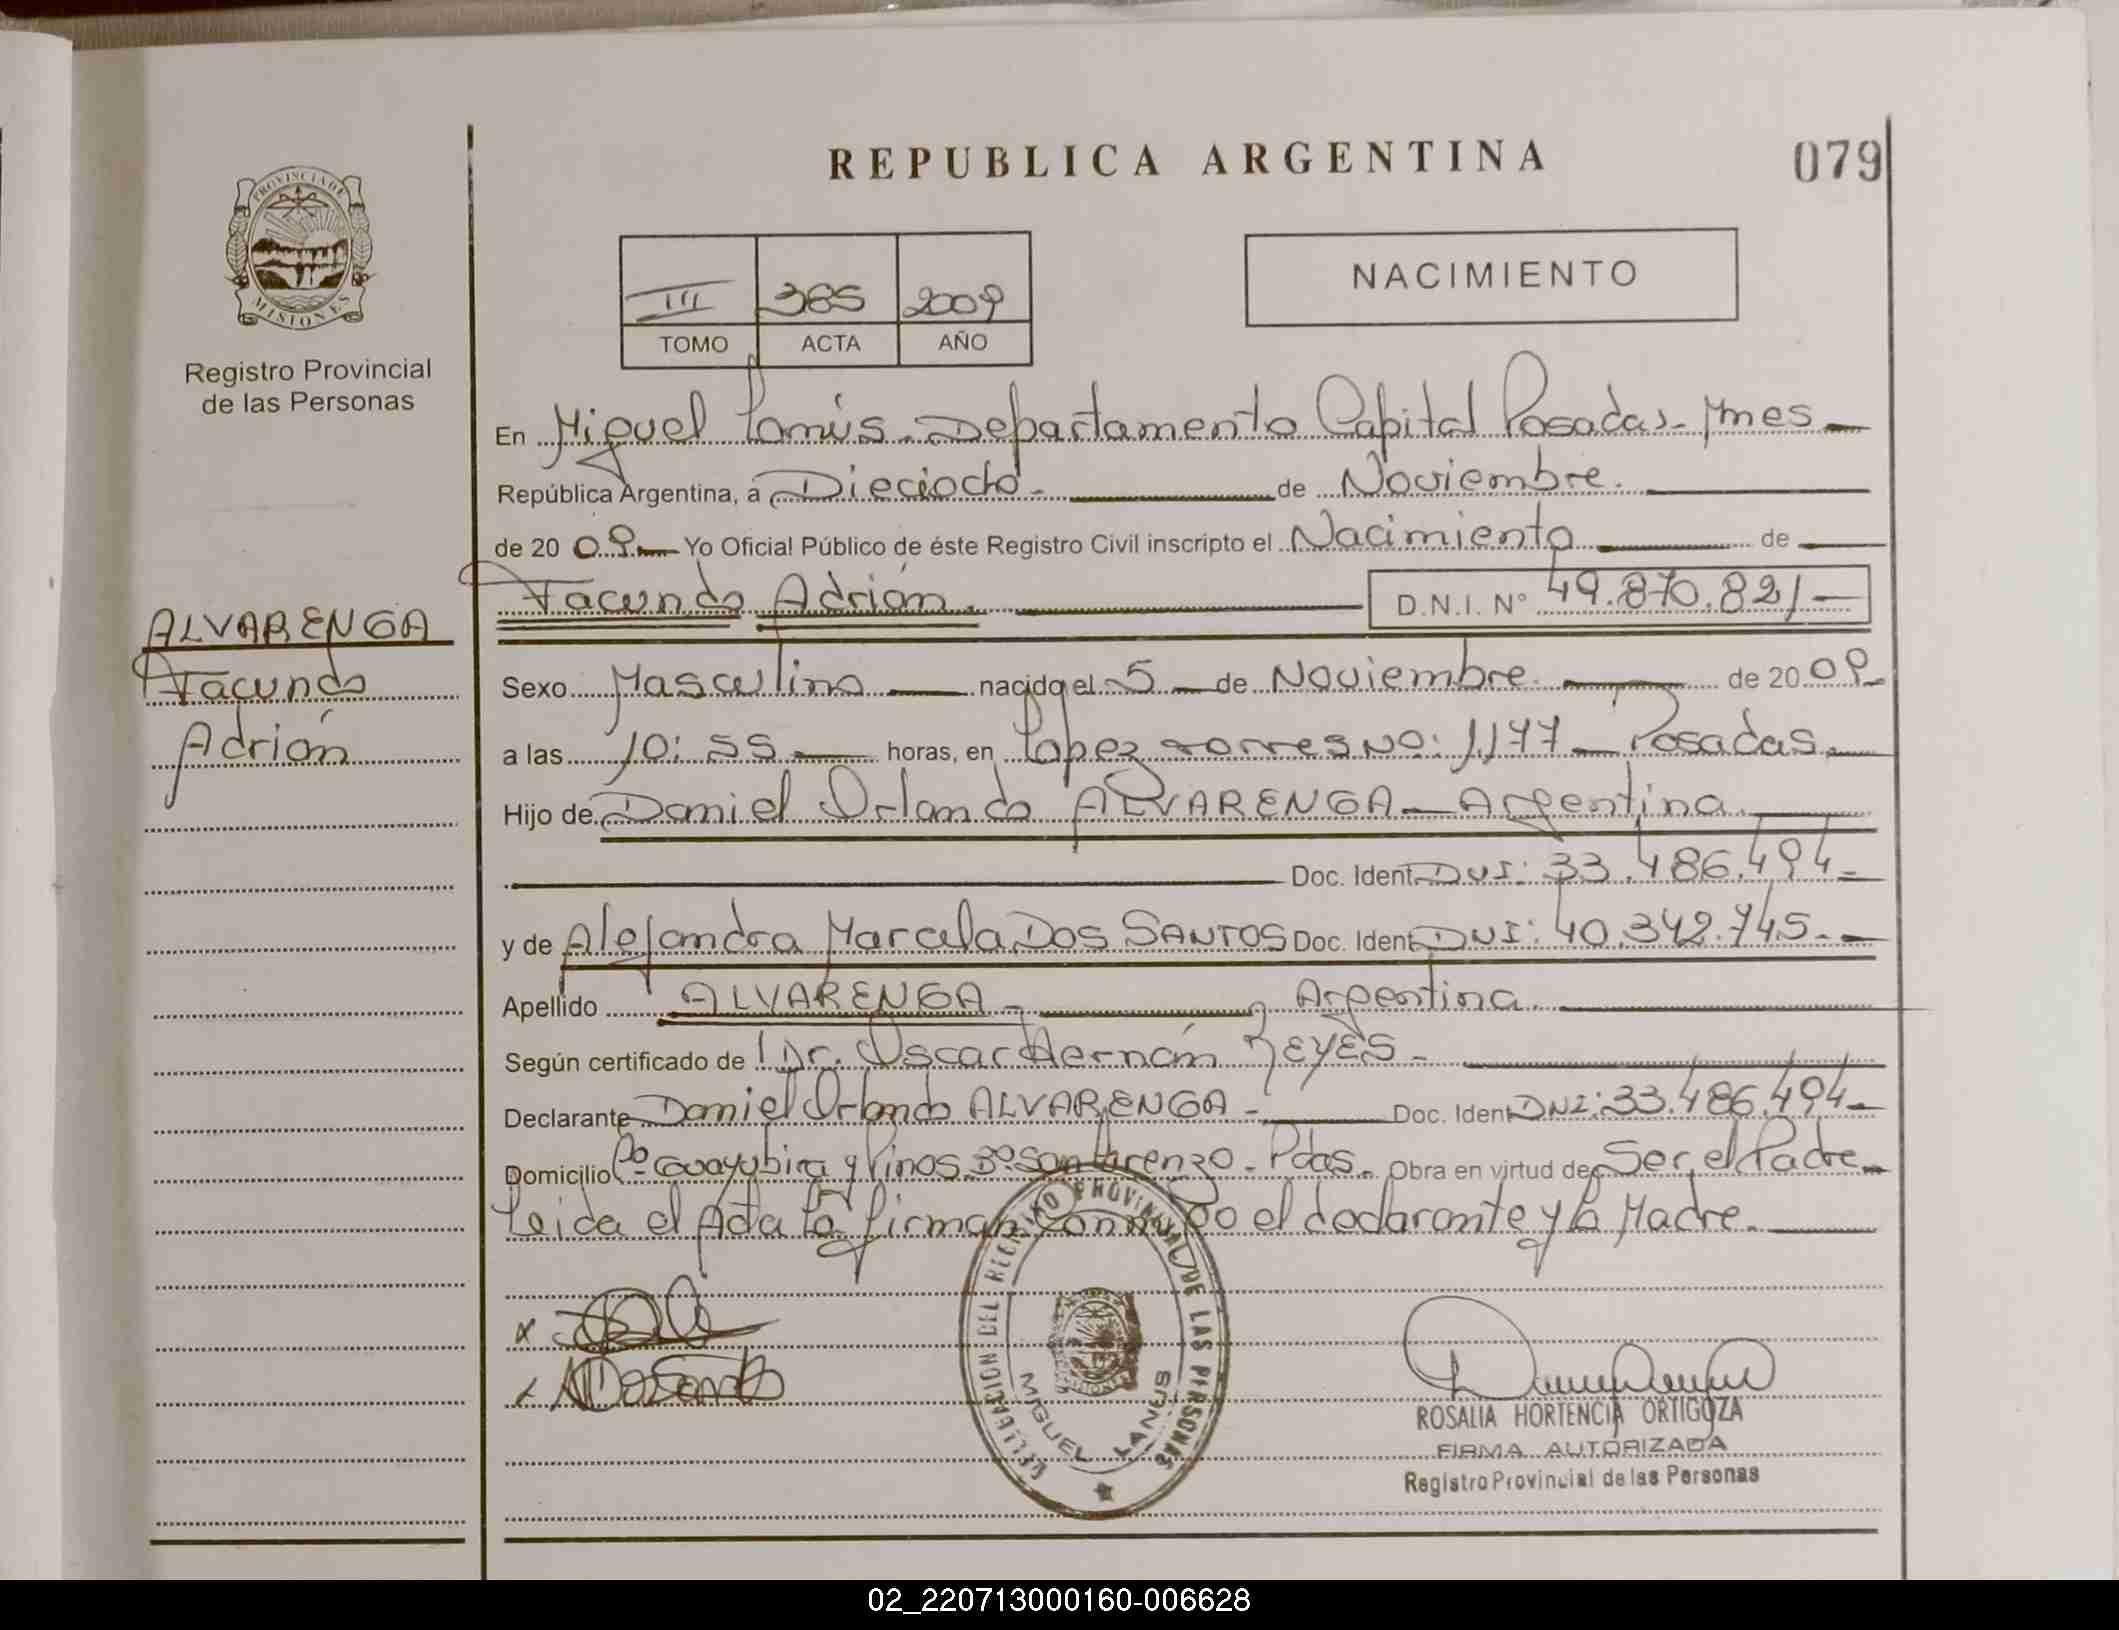 REPUBLICA ARGENTINA
079
PROVINCIA DE
MISIONES
Registro Provincial
de las Personas
III 385 2009
TOMO ACTA AÑO
NACIMIENTO
En Miguel Lanús - Departamento Capital Posadas - Mnes
República Argentina, a Dieciocho - de Noviembre.
de 20 09 Yo Oficial Público de éste Registro Civil inscripto el Nacimiento de
Facundo Adrián. D.N.I. N° 49.870.821
ALVARENGA
Facundo
Adrián
Sexo Masculino nacido el 5 de Noviembre de 20 09
a las 10:55 horas, en Lopez Torres No: 1177 Posadas
Hijo de Daniel Orlando ALVARENGA - Argentina
Doc. Ident. DNI: 33.486.494
y de Alejandra Marcela DOS SANTOS Doc. Ident DNI: 40.342.745.
Apellido ALVARENGA - Argentina.
Según certificado de Dr. Oscar Hernán REYES -
Declarante Daniel Orlando ALVARENGA - Doc. Ident DNI: 33.486.494
Domicilio Guayubira y Pinos Bº San Lorenzo - Pdas. Obra en virtud de Ser el Padre
Leida el Acta la firman conmigo el declarante y la Madre.
DELEGACION DEL REGISTRO PROVINCIAL DE LAS PERSONAS
MIGUEL LANUS
ROSALIA HORTENCIA ORTIGOZA
FIRMA AUTORIZADA
Registro Provincial de las Personas
02_220713000160-006628